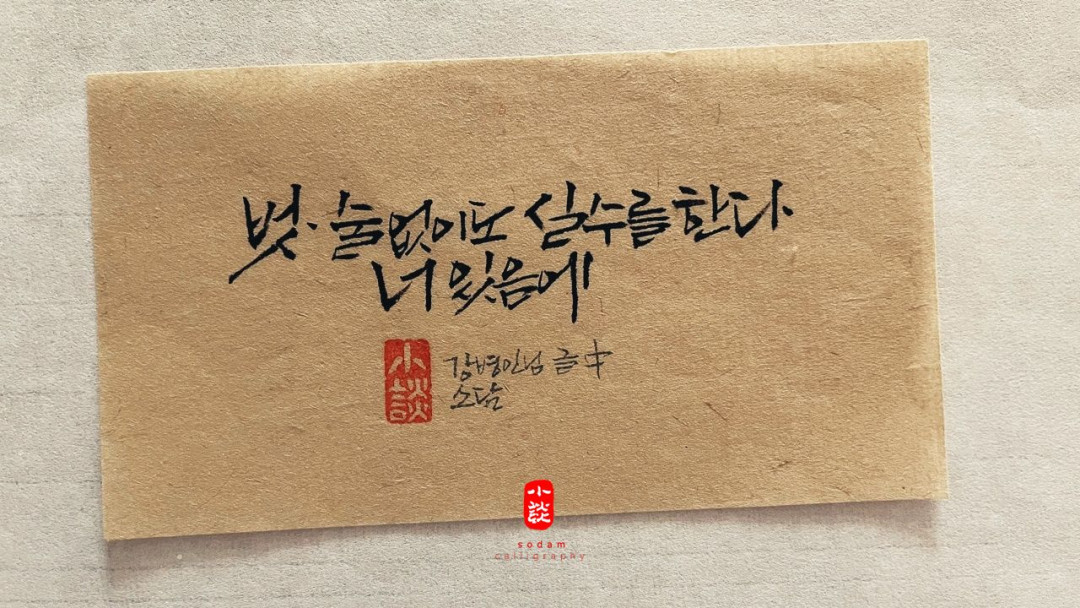 벗. 술 없이도 실수를 한다.
너 있음에
小談
강병인님 글 中
소담
小談
sodam
calligraphy